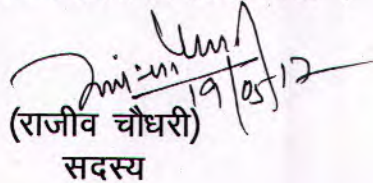 19/05/12
(राजीव चौधरी)
सदस्य